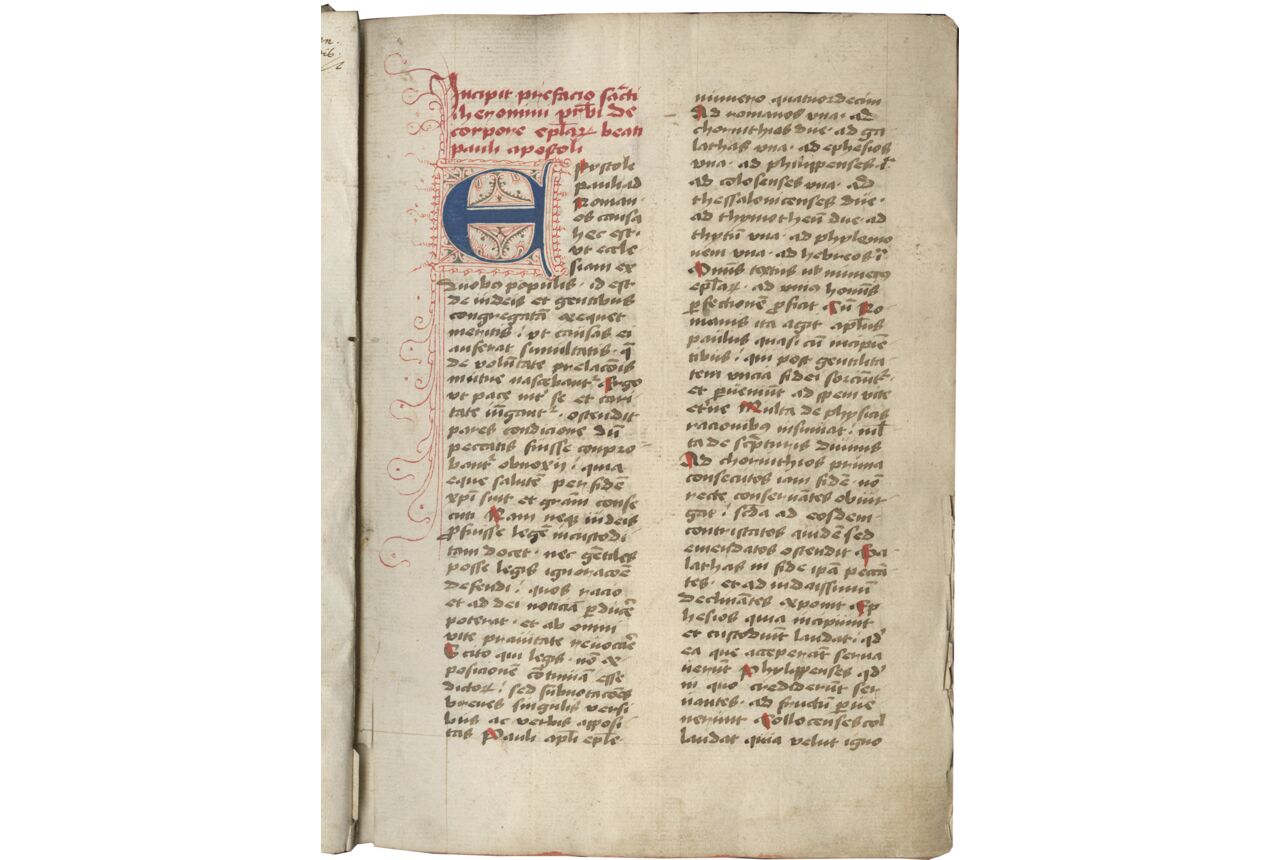 Incipit prefacio sācti
iheronimi prb̄i de
corpore ep̄laꝝ beati
pauli apostoli
Epistole
pauli ad
Roman
os causa
hec est ·
ut eccle
siam ex
duobus populis · id est
de iudeis et gentibus
congregatā exequet
meritis · ut causas ei
auferat simultatis · q̄
de volūtate prelacōis
mutue nascebant᷑ · Ergo
ut pace int᷑ se et cari
tate iūgant᷑ · ostendit
pares condicione dū
peccatis fuisse conpro
bant᷑ obnoxii · quia
eque salutē per fidē
xp̄i sūt et grām conse
cuti Nam neqꝫ iudeis
ꝓfuisse legē incustodi
tam docet · nec gētiles
posse legis ignoracōē
defendi · quos racio
et ad dei noticiā ꝑducē
poterat · et ab omni
vite prauitate reuocāē
Scito qui legis · nō ex
posicionē cōtinuā esse
dictoꝝ · sed subnotacōēs
breues singulis versi
bus ac verbis apposi
tas Pauli apl̄i ep̄le
numero quatuordecim
Ad romanos vna · ad
chorinthios due · ad ga
lathas vna · ad ephesios
vna · ad philippenses ī ·
ad colosenses vna · ad
thessalonicenses due ·
ad thymotheū due · ad
thytū vna · ad phylemo
nem vna · ad hebreos ī ·
Primus textus ut numerus
ep̄laꝝ · ad vnius homīs
ꝑfectionē ꝓficiat Cū Ro
manis ita agit apl̄us
paulus quasi cū incipiē
tibus · qui post gentilita
tem vncia fidei sorciūt᷑
et ꝑueniūt ad spem vite
et̄ne Multa de physicis
racionibus insinuat · mul
ta de sc̄pturis diuinis
Ad chorinthios prima
consecutos iam fidē · nō
recte conseruātes obiur
gat · sc̄da ad eosdem
contristatos quidē sed
emendatos ostendit Ga
lathas in fide ip̄ā peccā
tes · et ad iudaissimū
declinātes exponit Ep
hesios quia incipiunt
et custodiūt laudat · qd̓
ea que acceperāt serua
uerūt Phylippenses qd̓
in quo crediderūt ser
uantes · ad fructū ꝑue
nerunt Collocenses col
laudat quia velut igno